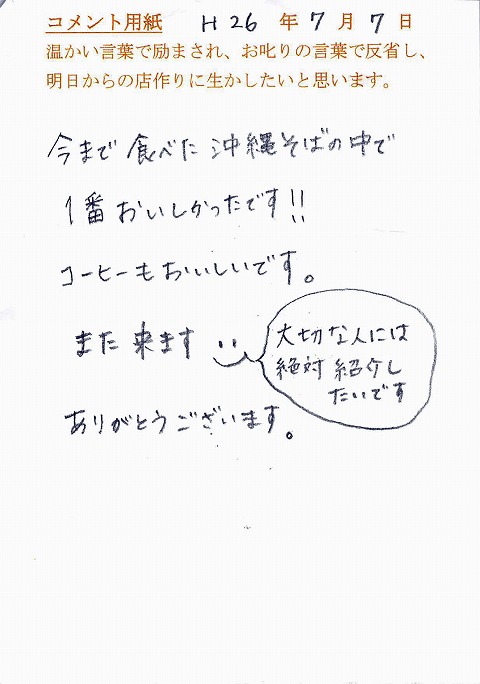 コメント用紙 H26年7月7日
温かい言葉で励まされ、お叱りの言葉で反省し、
明日からの店作りに生かしたいと思います。
今まで食べた沖縄そばの中で
1番おいしかったです!!
コーヒーもおいしいです。
また来ます
大切な人には
絶対紹介し
たいです
ありがとうございます。